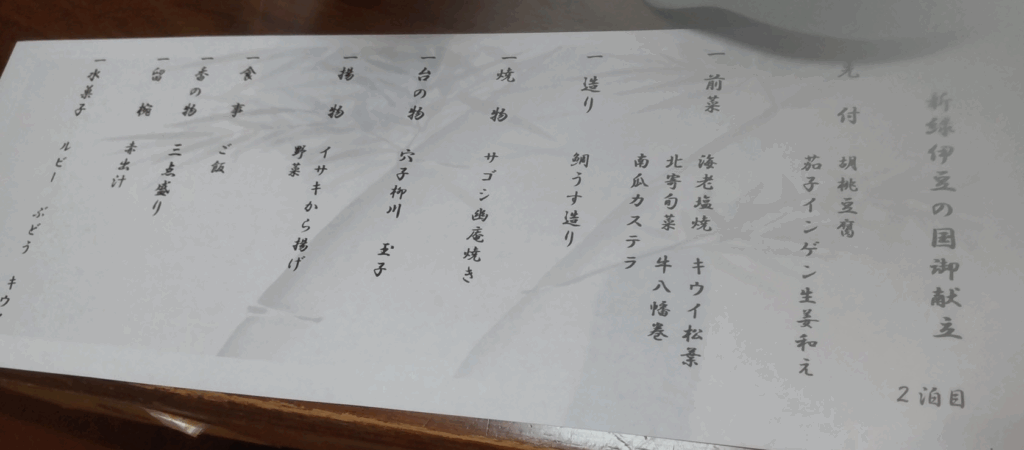 新緑伊豆の国御献立
2泊目
先付 胡桃豆腐
茄子インゲン生姜和え
一 前菜 海老塩焼 キウイ松葉
北寄旬菜 牛八幡巻
南瓜カステラ
一 造り 鯛うす造り
一 焼物 サゴシ幽庵焼き
一 台の物 穴子柳川 玉子
一 揚物 イサキから揚げ
野菜
一 食事 ご飯
一 香の物 三点盛り
一 留椀 赤出汁
一 水菓子 ルビー ぶどう キウ